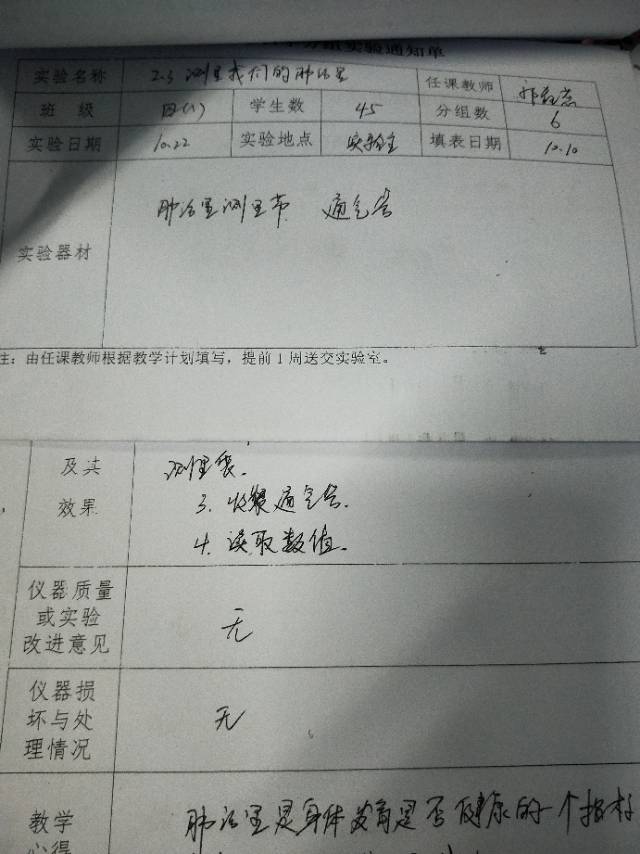 分组实验通知单
实验名称 2.3 测量我们的肺活量 任课教师
班 级 四(1) 学生数 45 分组数 6
实验日期 10.22 实验地点 实验室 填表日期 10.10
实验器材 肺活量测量带 通气管
注：由任课教师根据教学计划填写，提前1周送交实验室。
及其 测量袋.
效果 3. 收集通气管.
4. 读取数值.
仪器质量
或实验 无
改进意见
仪器损
坏与处 无
理情况
教学 肺活量是身体发育是否健康的一个指标
心得